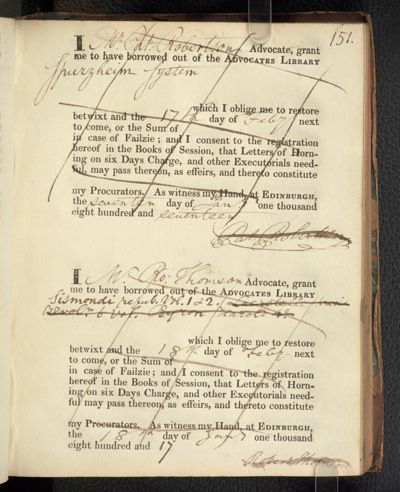 151.
I Mr Pat. Robertson Advocate, grant
me to have borrowed out of the ADVOCATES LIBRARY
Spurzheim System
which I oblige me to restore
betwixt and the 17th day of Feby next
to come, or the Sum of
in case of Failzie; and I consent to the registration
hereof in the Books of Session, that Letters of Horn-
ing on six Days Charge, and other Executorials need-
ful, may pass thereon, as effeirs, and thereto constitute
my Procurators. As witness my Hand, at EDINBURGH,
the seventeen day of Jany one thousand
eight hundred and seventeen
Pat. Robertson
I Mr Ro. Thomson Advocate, grant
me to have borrowed out of the ADVOCATES LIBRARY
Sismondi repub. Vol. 1 & 2.
which I oblige me to restore
betwixt and the 18th day of Feby next
to come, or the Sum of
in case of Failzie; and I consent to the registration
hereof in the Books of Session, that Letters of Horn-
ing on six Days Charge, and other Executorials need-
ful may pass thereon, as effeirs, and thereto constitute
my Procurators. As witness my Hand, at EDINBURGH,
the 18th day of Jany one thousand
eight hundred and 17
Robert Thomson